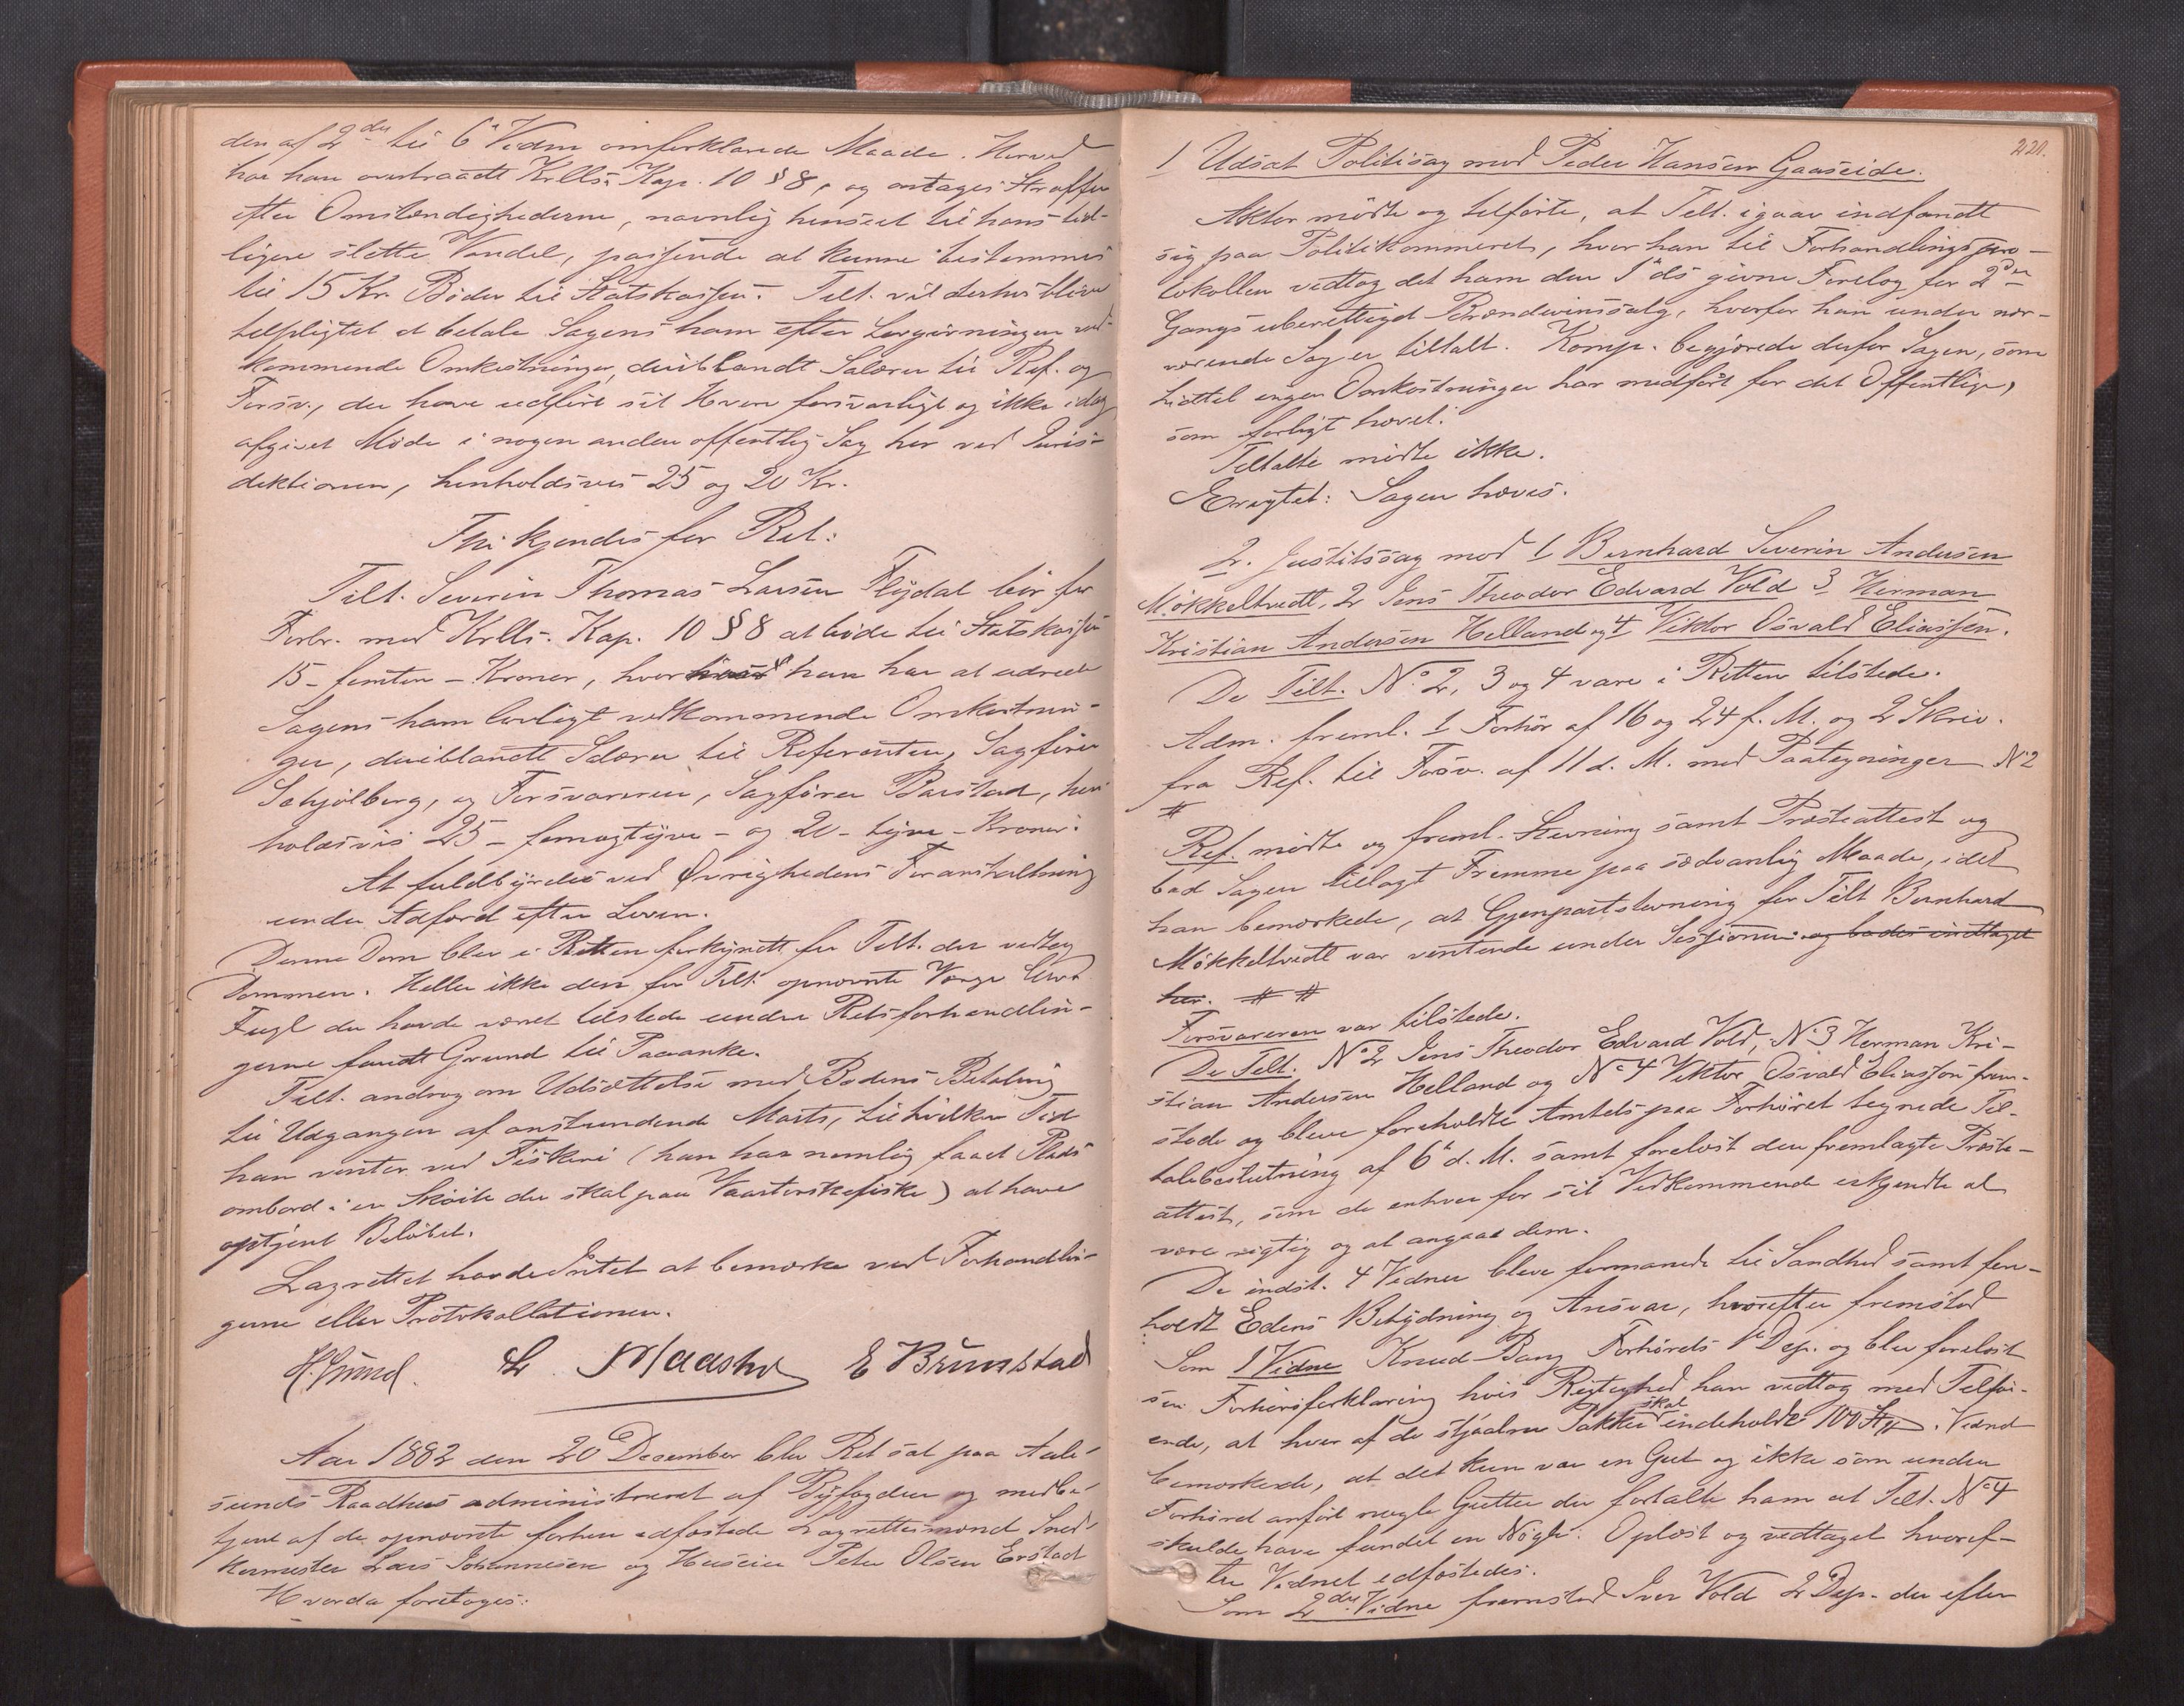 den af 2den til 6te Vidne omforklarede Maade. Herved
har han overtraadt Krlls. Kap. 10 § 8, og antages Straffen
efter Omstændighederne, navnlig henseet til hans tid-
ligere slette Vandel, passende at kunne bestemmes
til 15 Kr. Bøder til Statskassen. Tilt. vil derhos blive
tilpligtet at betale Sagens ham efter Lovgivningen ved-
kommende Omkostninger, deriblandt Salærer til Ref. og
Forsv., der have udført sit Hverv forsvarligt og ikke idag
afgivet Møde i nogen anden offentlig Sag her ved Juris-
diktionen, henholdsvis 25 og 20 Kr.
Thi kjendes for Ret:
Tilt. Severin Thomas Larsen Fløjdal bør for
Forbr. mod Krlls. Kap. 10 § 8 at bøde til Statskassen
15 - femten - Kroner, hvorhos han har at udrede
Sagens ham lovligt vedkommende Omkostnin-
ger, deriblandt Salærer til Referenten, Sagfører
Schjølberg, og Forsvareren, Sagfører Barstad, hen-
holdsvis 25 - femogtyve - og 20 - tyve - Kroner.
At fuldbyrdes ved Øvrighedens Foranstaltning
under Adfærd efter Loven.
Denne Dom blev i Retten forkyndt for Tilt. der vedtog
Dommen. Heller ikke den for Tilt. opnævnte Værge
Fugl der havde været tilstede under Retsforhandlin-
gerne fandt Grund til Paaanke.
Tilt. androg om Udsættelse med Bødens Betaling
til Udgangen af anstundende Marts, til hvilken Tid
han venter ved Fiskeri (han har nemlig faaet Plads
ombord i en Skøite der skal paa Vaartorskefiske) at have
optjent Beløbet.
Lagrettet havde Intet at bemærke ved Forhandlin-
gerne eller Protokollationen.
L. Maashø E Brunstad
Aar 1882 den 20 December blev Ret sat paa Aale-
sunds Raadhus administreret af Byfogden og medbe-
tjent af de opnævnte forhen edfæstede Lagrettesmænd Sned-
kermester Lars Johannesen og Huseier Peter Olsen Erstad
Hvorda foretoges:
221.
1 Udsat Politisag mod Peder Hansen Gaaseide.
Aktor mødte og tilførte, at Tilt. igaar indfandt
sig paa Politikammeret, hvor han til Forhandlingspro-
tokollen vedtog det ham den 1ste ds givne Forelæg for 2den
Gangs uberettiget Brændevinssalg, hvorfor han under nær-
værende Sag er tiltalt. Komp. begjærede derfor Sagen, som
hidtil ingen Omkostninger har medført for det Offentlige,
som forligt hævet.
Tiltalte mødte ikke.
Eragtet: Sagen hæves.
2. Justitssag mod 1 Bernhard Severin Andersen
Møkkeltvedt, 2 Jens Theodor Edvard Vold 3 Herman
Kristian Andersen Helland og 4 Viktor Osvald Eliassen.
De Tilt. No. 2, 3 og 4 vare i Retten tilstede.
Adm. freml. 1 Forhør af 16 og 24 f. M. og 2 Skriv.
fra Ref. til Forsv. af 11 d. M. med Paategninger No 2
#
Ref. mødte og freml. Stevning samt Præsteattest og
bad Sagen tillagt Fremme paa sædvanlig Maade, idet
han bemærkede, at Gjenpartstevning for Tilt Bernhard
Møkkeltvedt var ventende under Sessionen og bades indtaget
her. # #
Forsvareren var tilstede.
De Tilt. No 2 Jens Theodor Edvard Vold, No 3 Herman Kri-
stian Andersen Helland og No 4 Viktor Osvald Eliassen frem-
stode og bleve foreholdte Amtets paa Forhøret tegnede Til-
talebeslutning af 6te d. M. samt forelæst den fremlagte Præste-
attest, som de enhver for sit Vedkommende erkjendte at
være rigtig og at angaa dem.
De indst. 4 Vidner bleve formanede til Sandhed samt fore-
holdt Edens Betydning og Ansvar, hvorefter fremstod
Som 1 Vidne Knud Bang Forhørets 1ste Dep. og blev forelæst
sin Forhørsforklaring hvis Rigtighed han vedtog med Tilføi-
ende, at hver af de stjaalne Pakker skal indeholdt 100 St. Vidnet
bemærkede, at det kun var en Gut og ikke som under
Forhøret anført nogle Gutter der fortalte ham at Tilt. No 4
skulde have fundet en Nøgle. Oplæst og vedtaget hvoref-
ter Vidnet edfæstedes.
Som 2det Vidne fremstod Iver Vold 2 Dep. der efter